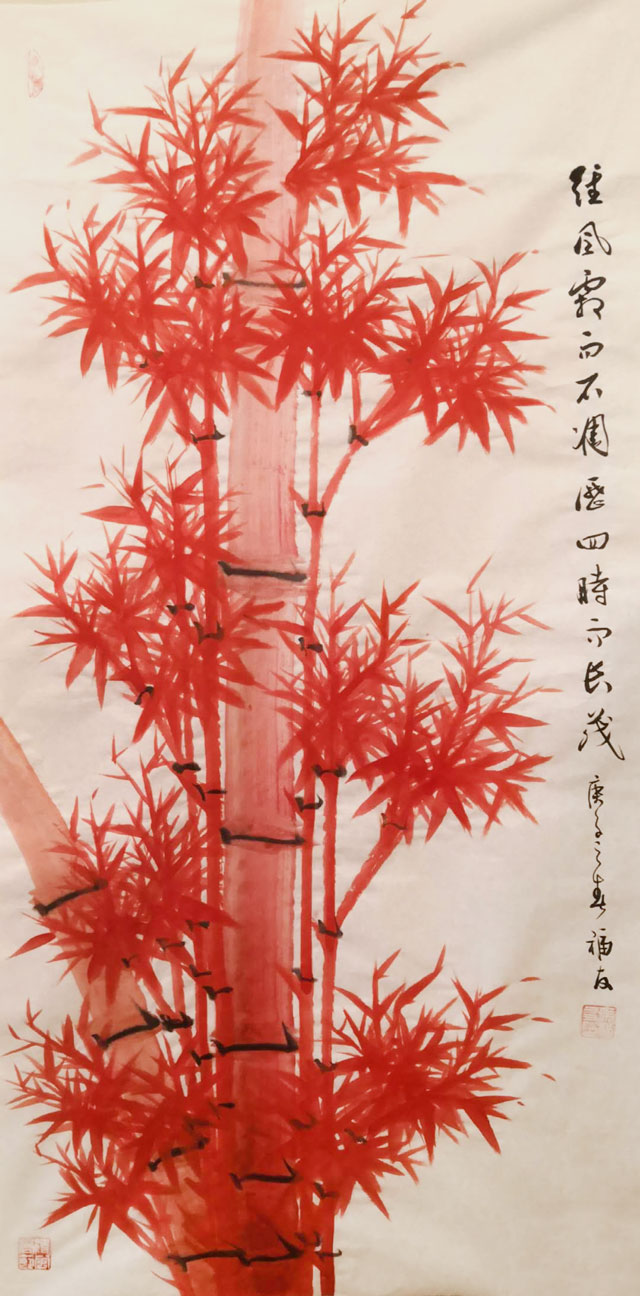 經風霜而不凋歷四時而长茂
庚子之春福友